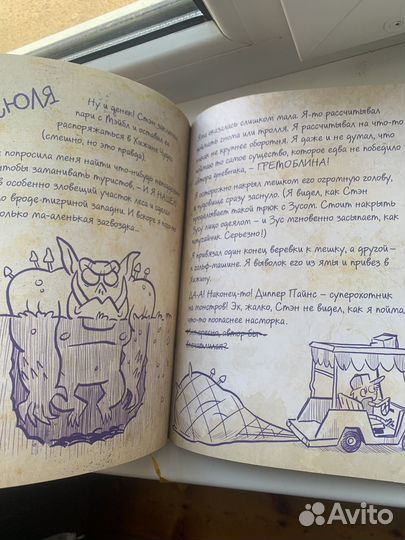 СЮЛЯ
Ну и денек! Стэн
пари с Мэйбл и оставил ее
распоряжаться в Хижине Чудес
(смешно, но это правда).
попросила меня найти что-нибудь
чтобы заманивать туристов, – И Я НАШЕЛ!
в особенно зловещий участок леса и сделал
вроде тигриной западни. И вскоре я по
только ма-аленькая загвоздка...
оказалась слишком мала. Я-то рассчитывал
гнома или тролля. Я рассчитывал на что-то
не крупнее оборотня. Я даже и не думал, что
то самое существо, которое едва не победило
дневника, – ГРЕМОБЛИНА!
осторожно накрыл мешком его огромную голову,
чудище сразу заснуло. (Я видел, как Стэн
проделывает такой трюк с Зусом. Стоит накрыть
Зусу лицо одеялом – и Зус мгновенно засыпает, как
попугайчик. Серьезно!)
Я привязал один конец веревки к мешку, а другой –
к гольф-машине. Я выволок его из ямы и привез в
Хижину.
ДА-А! Наконец-то! Диппер Пайнс – суперохотник
на монстров! Эх, жалко, Стэн не видел, как я пойма
что-то поопаснее насморка.
Интересно, автор бы
Avito